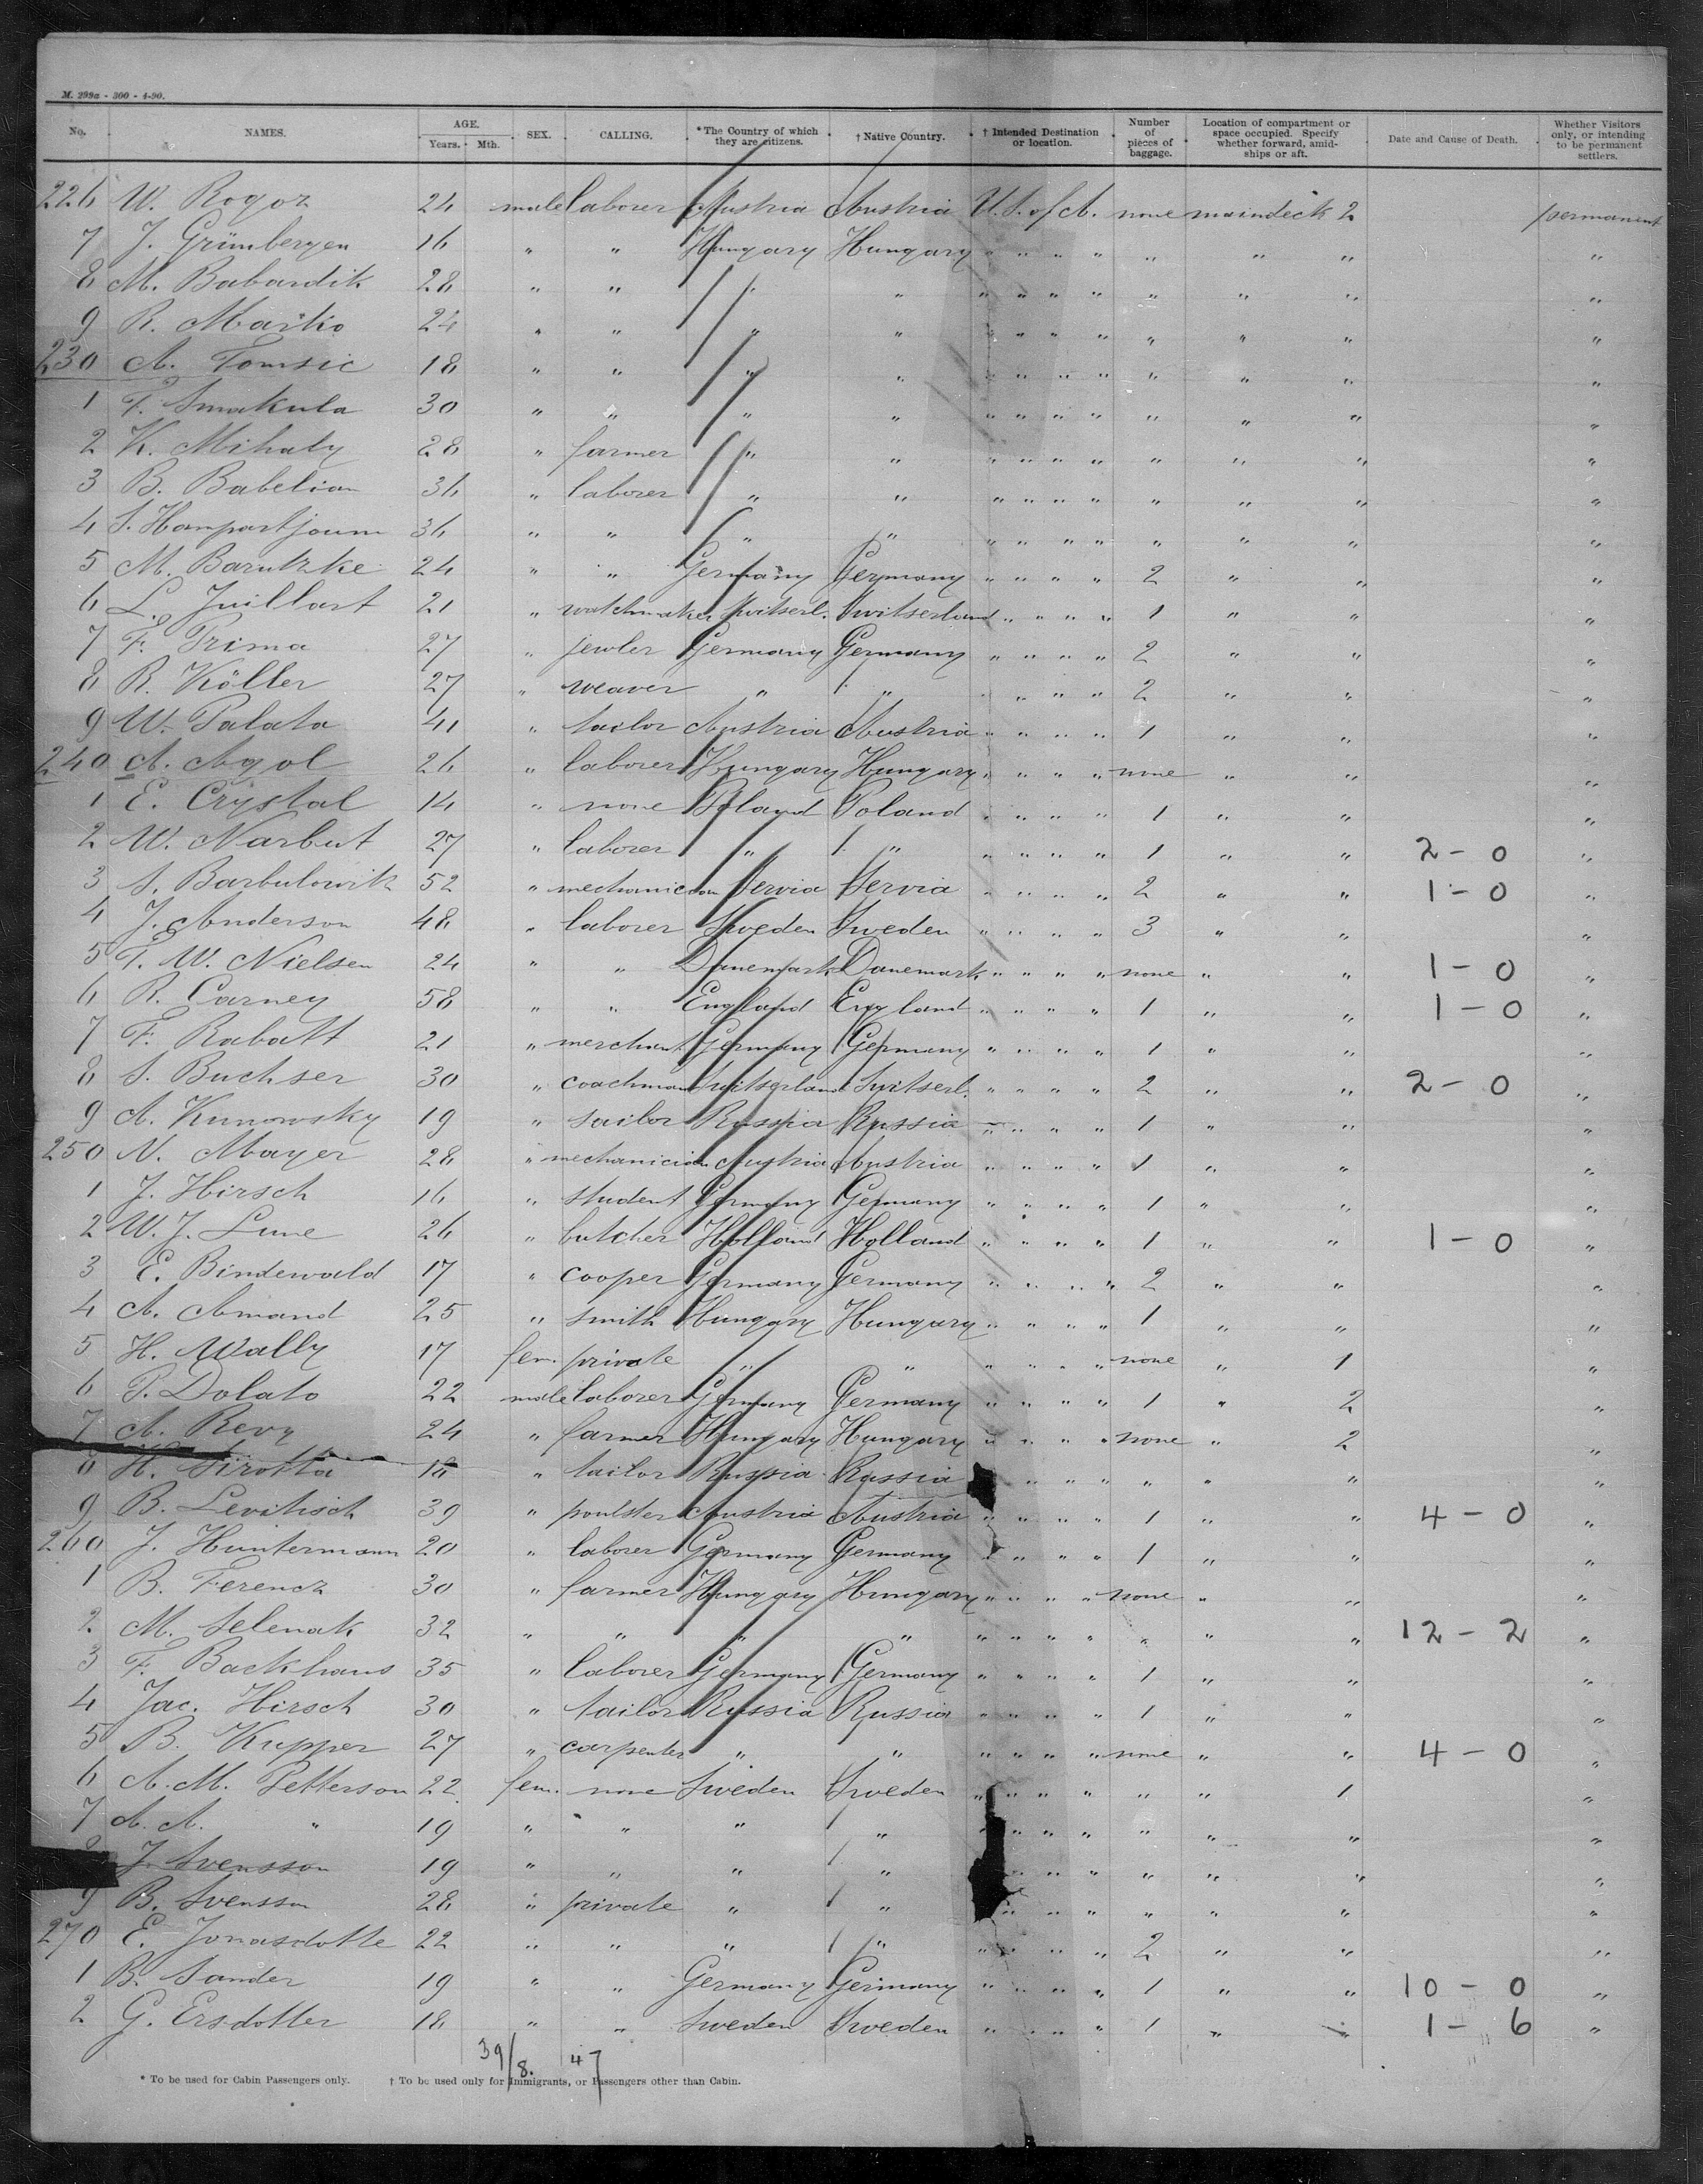 M. 299a - 300 - 4-90.
No. NAMES. AGE. Years. Mth. SEX. CALLING. *The Country of which they are citizens. † Native Country. † Intended Destination or location. Number of pieces of baggage. Location of compartment or space occupied. Specify whether forward, amidships or aft. Date and Cause of Death. Whether Visitors only, or intending to be permanent settlers.
226 W. Rogoz 24 male laborer Austria Austria U.S. of A. none maindeck 2 permanent
7 J. Grünbergen 16 " " Hungary Hungary " " " " " " " "
8 M. Babardik 28 " " " " " " " " " " " "
9 R. Marko 24 " " " " " " " " " " " "
230 A. Tomsic 18 " " " " " " " " " " " "
1 F. Smakula 30 " " " " " " " " " " " "
2 K. Mihaly 28 " farmer " " " " " " " " " "
3 B. Babelian 36 " laborer " " " " " " " " " "
4 S. Hampartjoum 36 " " " " " " " " " " " "
5 M. Barutzke 24 " " Germany Germany " " " " 2 " " "
6 L. Juillart 21 " watchmaker Switserl. Switserland " " " " 1 " " "
7 F. Prima 27 " jewler Germany Germany " " " " 2 " " "
8 R. Köller 27 " weaver " " " " " " 2 " " "
9 W. Palata 41 " tailor Austria Austria " " " " 1 " " "
240 A. Agol 26 " laborer Hungary Hungary " " " " none " " "
1 E. Crystal 14 " none Poland Poland " " " " 1 " " "
2 W. Narbut 27 " laborer " " " " " " 1 " " 2 - 0 "
3 S. Barbulowik 52 " mechanician Servia Servia " " " " 2 " " 1 - 0 "
4 J. Anderson 48 " laborer Sweden Sweden " " " " 3 " " "
5 T. W. Nielsen 24 " " Danemark Danemark " " " " none " " 1 - 0 "
6 R. Carney 58 " " England England " " " " 1 " " 1 - 0 "
7 F. Rabatt 21 " merchant Germany Germany " " " " 1 " " "
8 S. Buchser 30 " coachman Switserland Switserl. " " " " 2 " " 2 - 0 "
9 A. Kunowsky 19 " sailor Russia Russia " " " " 1 " " "
250 N. Mayer 28 " mechanician Austria Austria " " " " 1 " " "
1 J. Hirsch 16 " student Germany Germany " " " " 1 " " "
2 W. J. Lune 26 " butcher Holland Holland " " " " 1 " " 1 - 0 "
3 E. Bindewald 17 " cooper Germany Germany " " " " 2 " " "
4 A. Amand 25 " smith Hungary Hungary " " " " 1 " " "
5 H. Wally 17 fem. private " " " " " " none " 1 "
6 P. Dolato 22 male laborer Germany Germany " " " " 1 " 2 "
7 A. Revy 24 " farmer Hungary Hungary " " " " none " 2 "
8 H. Sirotta 18 " tailor Russia Russia " " " " " " "
9 B. Levitisch 39 " poulster Austria Austria " " " " 1 " " 4 - 0 "
260 J. Huntermann 20 " laborer Germany Germany " " " " 1 " " "
1 B. Ferencz 30 " farmer Hungary Hungary " " " " none " " "
2 M. Selenak 32 " " " " " " " " " " " 12 - 2 "
3 F. Backhaus 35 " laborer Germany Germany " " " " 1 " " "
4 Jac. Hirsch 30 " tailor Russia Russia " " " " 1 " " "
5 B. Kupper 27 " carpenter " " " " " " none " " 4 - 0 "
6 A. M. Petterson 22 fem. none Sweden Sweden " " " " " " 1 "
7 A. A. " 19 " " " " " " " " " " " "
J. Svensson 19 " " " " " " " " " " "
9 B. Svensson 28 " private " " " " " " " " "
270 E. Jonasdotte 22 " " " " " " " " 2 " " "
1 B. Sander 19 " " Germany Germany " " " " 1 " " 10 - 0 "
2 G. Ersdotter 18 " " Sweden Sweden " " " " 1 " " 1 - 6 "
39/8. 47
* To be used for Cabin Passengers only. † To be used only for Immigrants, or Passengers other than Cabin.